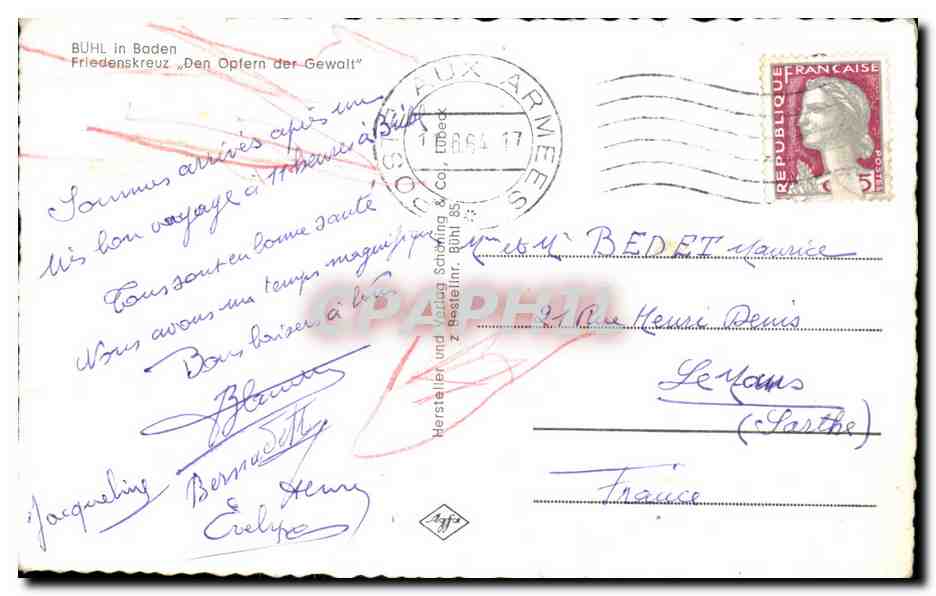 BÜHL in Baden
Friedenskreuz „Den Opfern der Gewalt"
Sommes arrivés après un
très bon voyage à 11 heures à Bühl
Tous sont en bonne santé
Nous avons un temps magnifique
Bons baisers à tous
Jacqueline
Bernadette
Henri
Evelyne
POSTE AUX ARMEES
8.64 17
Hersteller und Verlag Schöning & Co., Lübeck
z Bestellnr. Bühl 85
effbe
REPUBLIQUE FRANCAISE
POSTES
Mme et Mr BEDET Maurice
21 Rue Henri Denis
Le Mans
(Sarthe)
France
CPAPHIL